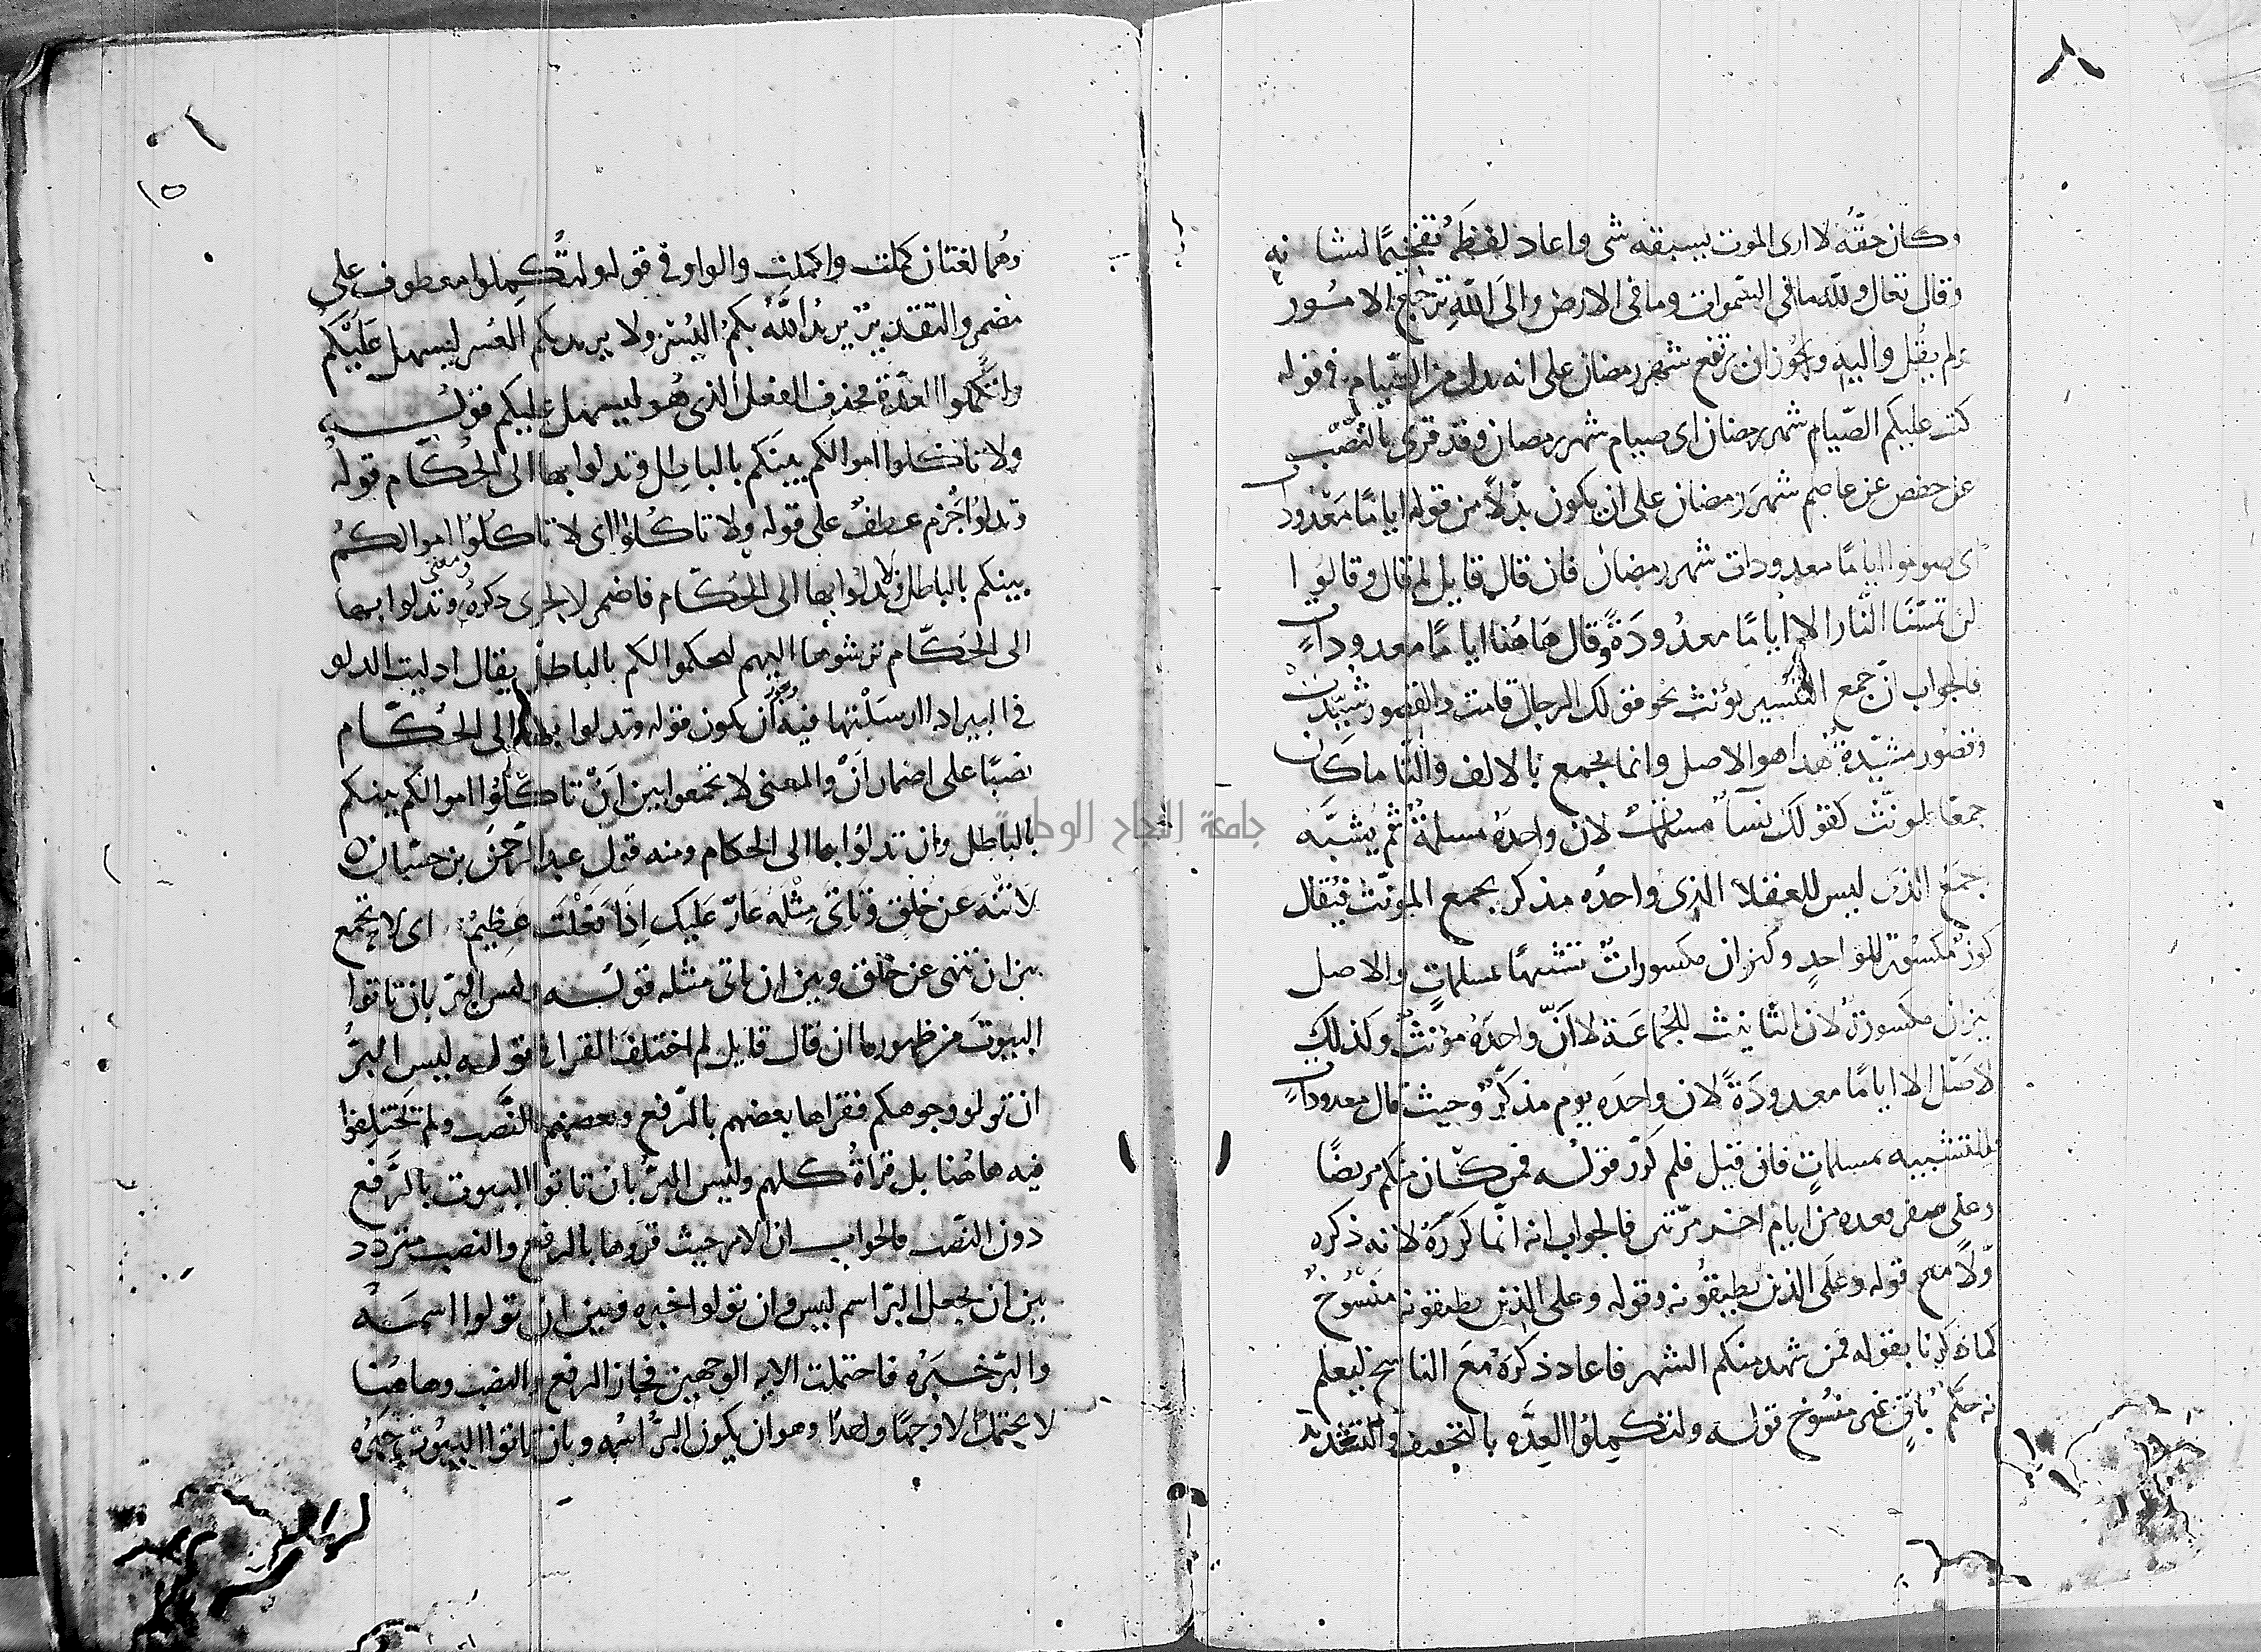 ٨
وكان حقّه لا ارى الموت يسبقه شى واعاد لفظه تفخيمًا لشانه
وقال تعالى ولله ما فى السّموات وما فى الارض والى الله ترجع الامور
ولم يقل واليه ويجوز ان ترفع شهر رمضان على انه بدل من الصّيام فى قوله
كتب عليكم الصّيام شهر رمضان اى صيام شهر رمضان وقد قرى بالنّصب
عن حفص عن عاصم شهرَ رمضان على ان يكون بدلاً من قوله ايامًا معدودات
اى صوموا ايامًا معدودات شهر رمضان فان قال قايل لم قال وقالوا
لن تمسّنا النار الا ايامًا معدُودَةً وقال هاهُنا ايامًا معدوداتٍ
فالجواب انّ جمع التكسير يؤنث نحو قولك الرجال قامت والقصور شُيّدتْ
وقصور مشيّدةٌ هذا هو الاصل وانما يجمع بالالف والتّا ما كان
جمعًا لمونّث كقولك نسآ مسلماتٌ لان واحدهُ مسلمةٌ ثم يشبَّه
جمعُ الذى ليس للعقلا الذى واحدُه مذكر بجمع المونّث فيُقال
كوز مكسور للواحد وكيزان مكسوراتٌ تشبهًا بمسلماتٍ والاصل
كيزان مكسورة لان التانيث للجُماعَة لا انّ واحدَهُ مؤنثٌ وكذلك
الاصل الا ايامًا معدودَةً لان واحدَه يوم مذكّر وحيث قال معدوداتٍ
فللتشبيه بمسلماتٍ فان قيل فلم كرّر قولُه فمن كان منكم مريضًا
وعلى سفر فعده من ايام اخر مرّتين فالجواب انه انّما كرّرَهُ لانه ذكره
اوّلاً مع قوله وعلى الذين يطيقُونه وقوله وعلى الذين يطيقونه منسُوخٌ
كما ذكرنا بقوله فمن شهد منكم الشهر فاعاد ذكرَهُ معَ الناسخ ليعلم
انه حكمٌ باقٍ غير منسُوخ قوله ولتكمِلُوا العِدَّه بالتخفيف والتشديد
١٥
وهُما لغتان كملت واكملت والواو فى قوله ولتُكمِلوا معطوف على
مضمر والتقدير يريدُ اللهُ بكمُ اليُسْرَ ولا يريد بكم العُسر ليسهل عَلَيْكُم
ولتكملوا العدّة فحذف الفعل الذى هُو ليسهل عليكم قولُه
ولا تاكلوا اموالكم بينَكم بالباطِل وتدلوا بها الى الحُكّام قولُه
وتدلوُا جُزم عطفٌ على قوله ولا تاكُلوا اى لا تاكُلوُا اموالكُم
بينكم بالباطل ولا تدلُوا بها الى الحُكّام فاضمر لا لجرى ذكرهُ ومعنى وتدلوا بها
الى الحُكّام ترشوها اليهم ليحكموا لكم بالباطل يقال ادليت الدلو
فى البير اذا ارسَلْتها فيه ويجوز ان يكون قوله وتدلوا بها الى الحُكّام
نصبًا على اضمار انْ والمعنى لا تجمعوا بين اَنْ تاكلُوا اموالكم بينكم
بالباطل وان تدلوُا بها الى الحكام ومنه قول عبد الرّحمن بن حسّان
لا تنه عَن خلقٍ وَتاتىَ مِثْلَهُ عَارٌ عَليك اِذَا فَعَلْتَ عَظِيمٌ اى لا تجمع
بين ان تنهى عن خلق وبين ان تاتى مثله قولُه وليس البر بان تاتوا
البيوتَ من ظهورها ان قال قايل لم اختلف القرا فى قوله ليس البرُّ
ان تولو وجوهكم فقراها بعضهم بالرّفع وبعضهم بالنَّصب ولم يختلِفوا
فيه هاهُنا بل قراهُ كلهم وليس البرُّ بان تاتوا البيوت بالرَّفع
دون النّصب فالجواب انّ الامر حيث قرَوها بالرفع والنصب متردد
بين ان يجعل البرّ اسم ليس وان تولوا خبره وبين ان تولوا اسمَهُ
والبرّ خبَرُه فاحتملت الايه الوجهين فجاز الرفع والنصب وهاهُنا
لا يحتمل الا وجهًا واحدًا وهو ان يكون البرُّ اسمُه وبان تاتوا البيُوت خبَرُه
جامعة النجاح الوطنية